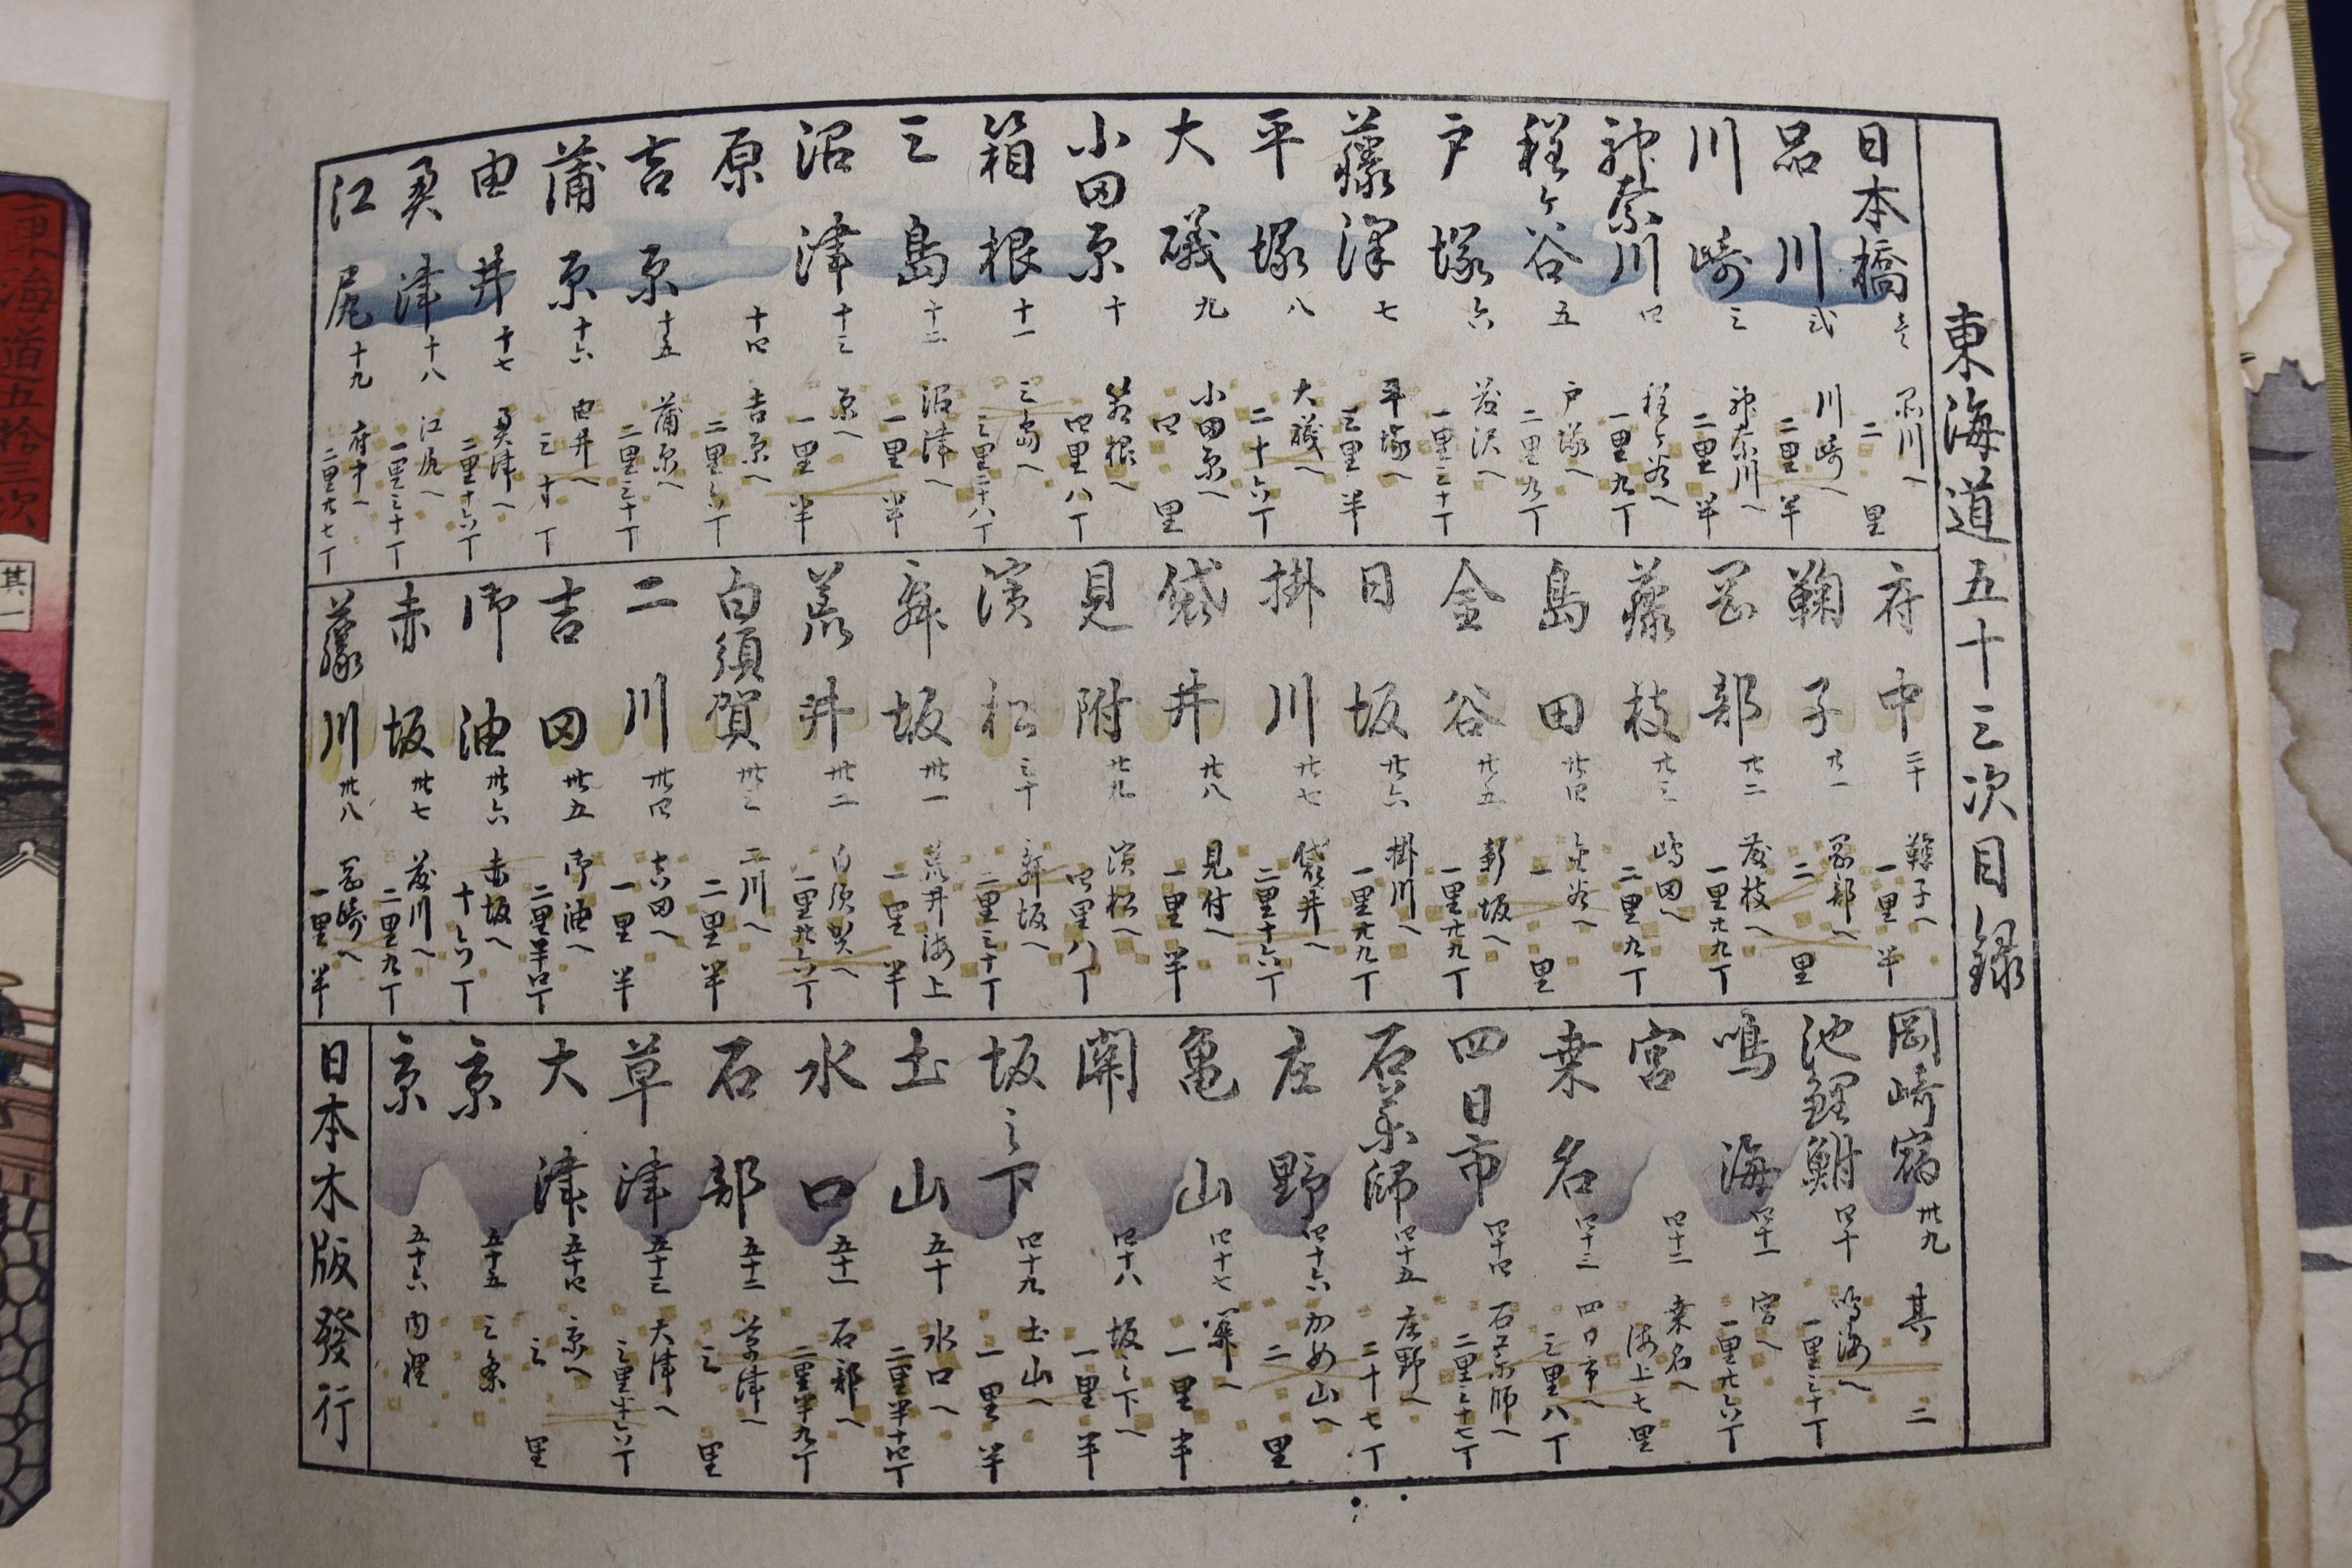 東海道五十三次目録
日本橋 壱 品川へ 二里
品川 弐 川崎へ 二里半
川崎 三 神奈川へ 二里半
神奈川 四 程ヶ谷へ 一里九丁
程ヶ谷 五 戸塚へ 二里九丁
戸塚 六 藤沢へ 一里三十丁
藤澤 七 平塚へ 三里半
平塚 八 大磯へ 二十六丁
大磯 九 小田原へ 四里
小田原 十 箱根へ 四里八丁
箱根 十一 三島へ 三里二十八丁
三島 十二 沼津へ 一里半
沼津 十三 原へ 一里半
原 十四 吉原へ 二里六丁
吉原 十五 蒲原へ 二里三十丁
蒲原 十六 由井へ 三十丁
由井 十七 奥津へ 二里十六丁
奥津 十八 江尻へ 一里三十丁
江尻 十九 府中へ 二里廿七丁
府中 二十 鞠子へ 一里半
鞠子 廿一 岡部へ 二里
岡部 廿二 藤枝へ 一里廿九丁
藤枝 廿三 嶋田へ 二里九丁
島田 廿四 金谷へ 一里
金谷 廿五 新坂へ 一里廿九丁
日坂 廿六 掛川へ 一里廿九丁
掛川 廿七 袋井へ 二里十六丁
袋井 廿八 見付へ 一里半
見附 廿九 濱松へ 四里八丁
濱松 三十 舞坂へ 二里三十丁
舞坂 卅一 荒井海上 一里半
荒井 卅二 白須賀へ 一里廿六丁
白須賀 卅三 二川へ 二里半
二川 卅四 吉田へ 一里半
吉田 卅五 御油へ 二里半四丁
御油 卅六 赤坂へ 十六丁
赤坂 卅七 藤川へ 二里九丁
藤川 卅八 岡崎へ 一里半
岡崎宿 卅九 其二
池鯉鮒 四十 鳴海へ 一里三十丁
鳴海 四十一 宮へ 一里廿六丁
宮 四十二 桑名へ 海上七里
桑名 四十三 四日市へ 三里八丁
四日市 四十四 石薬師へ 二里三十七丁
石薬師 四十五 庄野へ 二十七丁
庄野 四十六 かめ山へ 二里
亀山 四十七 關へ 一里半
関 四十八 坂之下へ 一里半
坂之下 四十九 土山へ 一里半
土山 五十 水口へ 二里半十四丁
水口 五十一 石部へ 二里半九丁
石部 五十二 草津へ 三里
草津 五十三 大津へ 三里半六丁
大津 五十四 京へ 三里
京 五十五 三条
京 五十六 内裡
日本木版發行
東海道五拾三次
其一